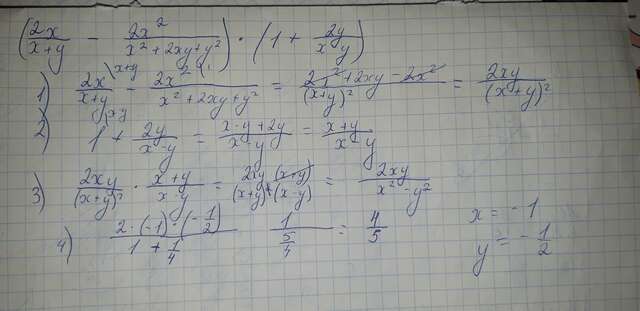 (2x/(x+y) - 2x²/(x² + 2xy + y²)) · (1 + 2y/(x-y))
1) 2x/(x+y) \x+y - 2x²/(x² + 2xy + y²) \1 = (2x² + 2xy - 2x²)/(x+y)² = 2xy/(x+y)²
2) 1 \x-y + 2y/(x-y) = (x-y+2y)/(x-y) = (x+y)/(x-y)
3) 2xy/(x+y)² · (x+y)/(x-y) = 2xy(x+y)/((x+y)²(x-y)) = 2xy/(x²-y²)
4) (2·(-1)·(-1/2))/(1 + 1/4) 1/(5/4) = 4/5
x = -1
y = -1/2